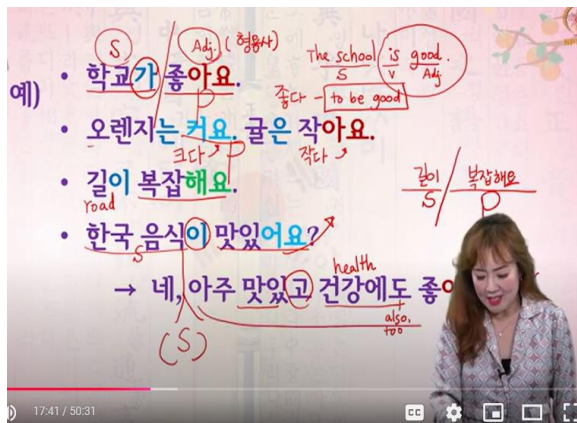 S Adj. (형용사)
예) • 학교가 좋아요.
P
The school / is good.
S V Adj
좋다 - to be good
• 오렌지는 커요. 귤은 작아요.
크다 P 작다
• 길이 복잡해요.
road
길이 / 복잡해요
S P
• 한국 음식이 맛있어요?
S
health
→ 네, 아주 맛있고 건강에도 좋
also,
too
(S)
17:41 / 50:31
CC